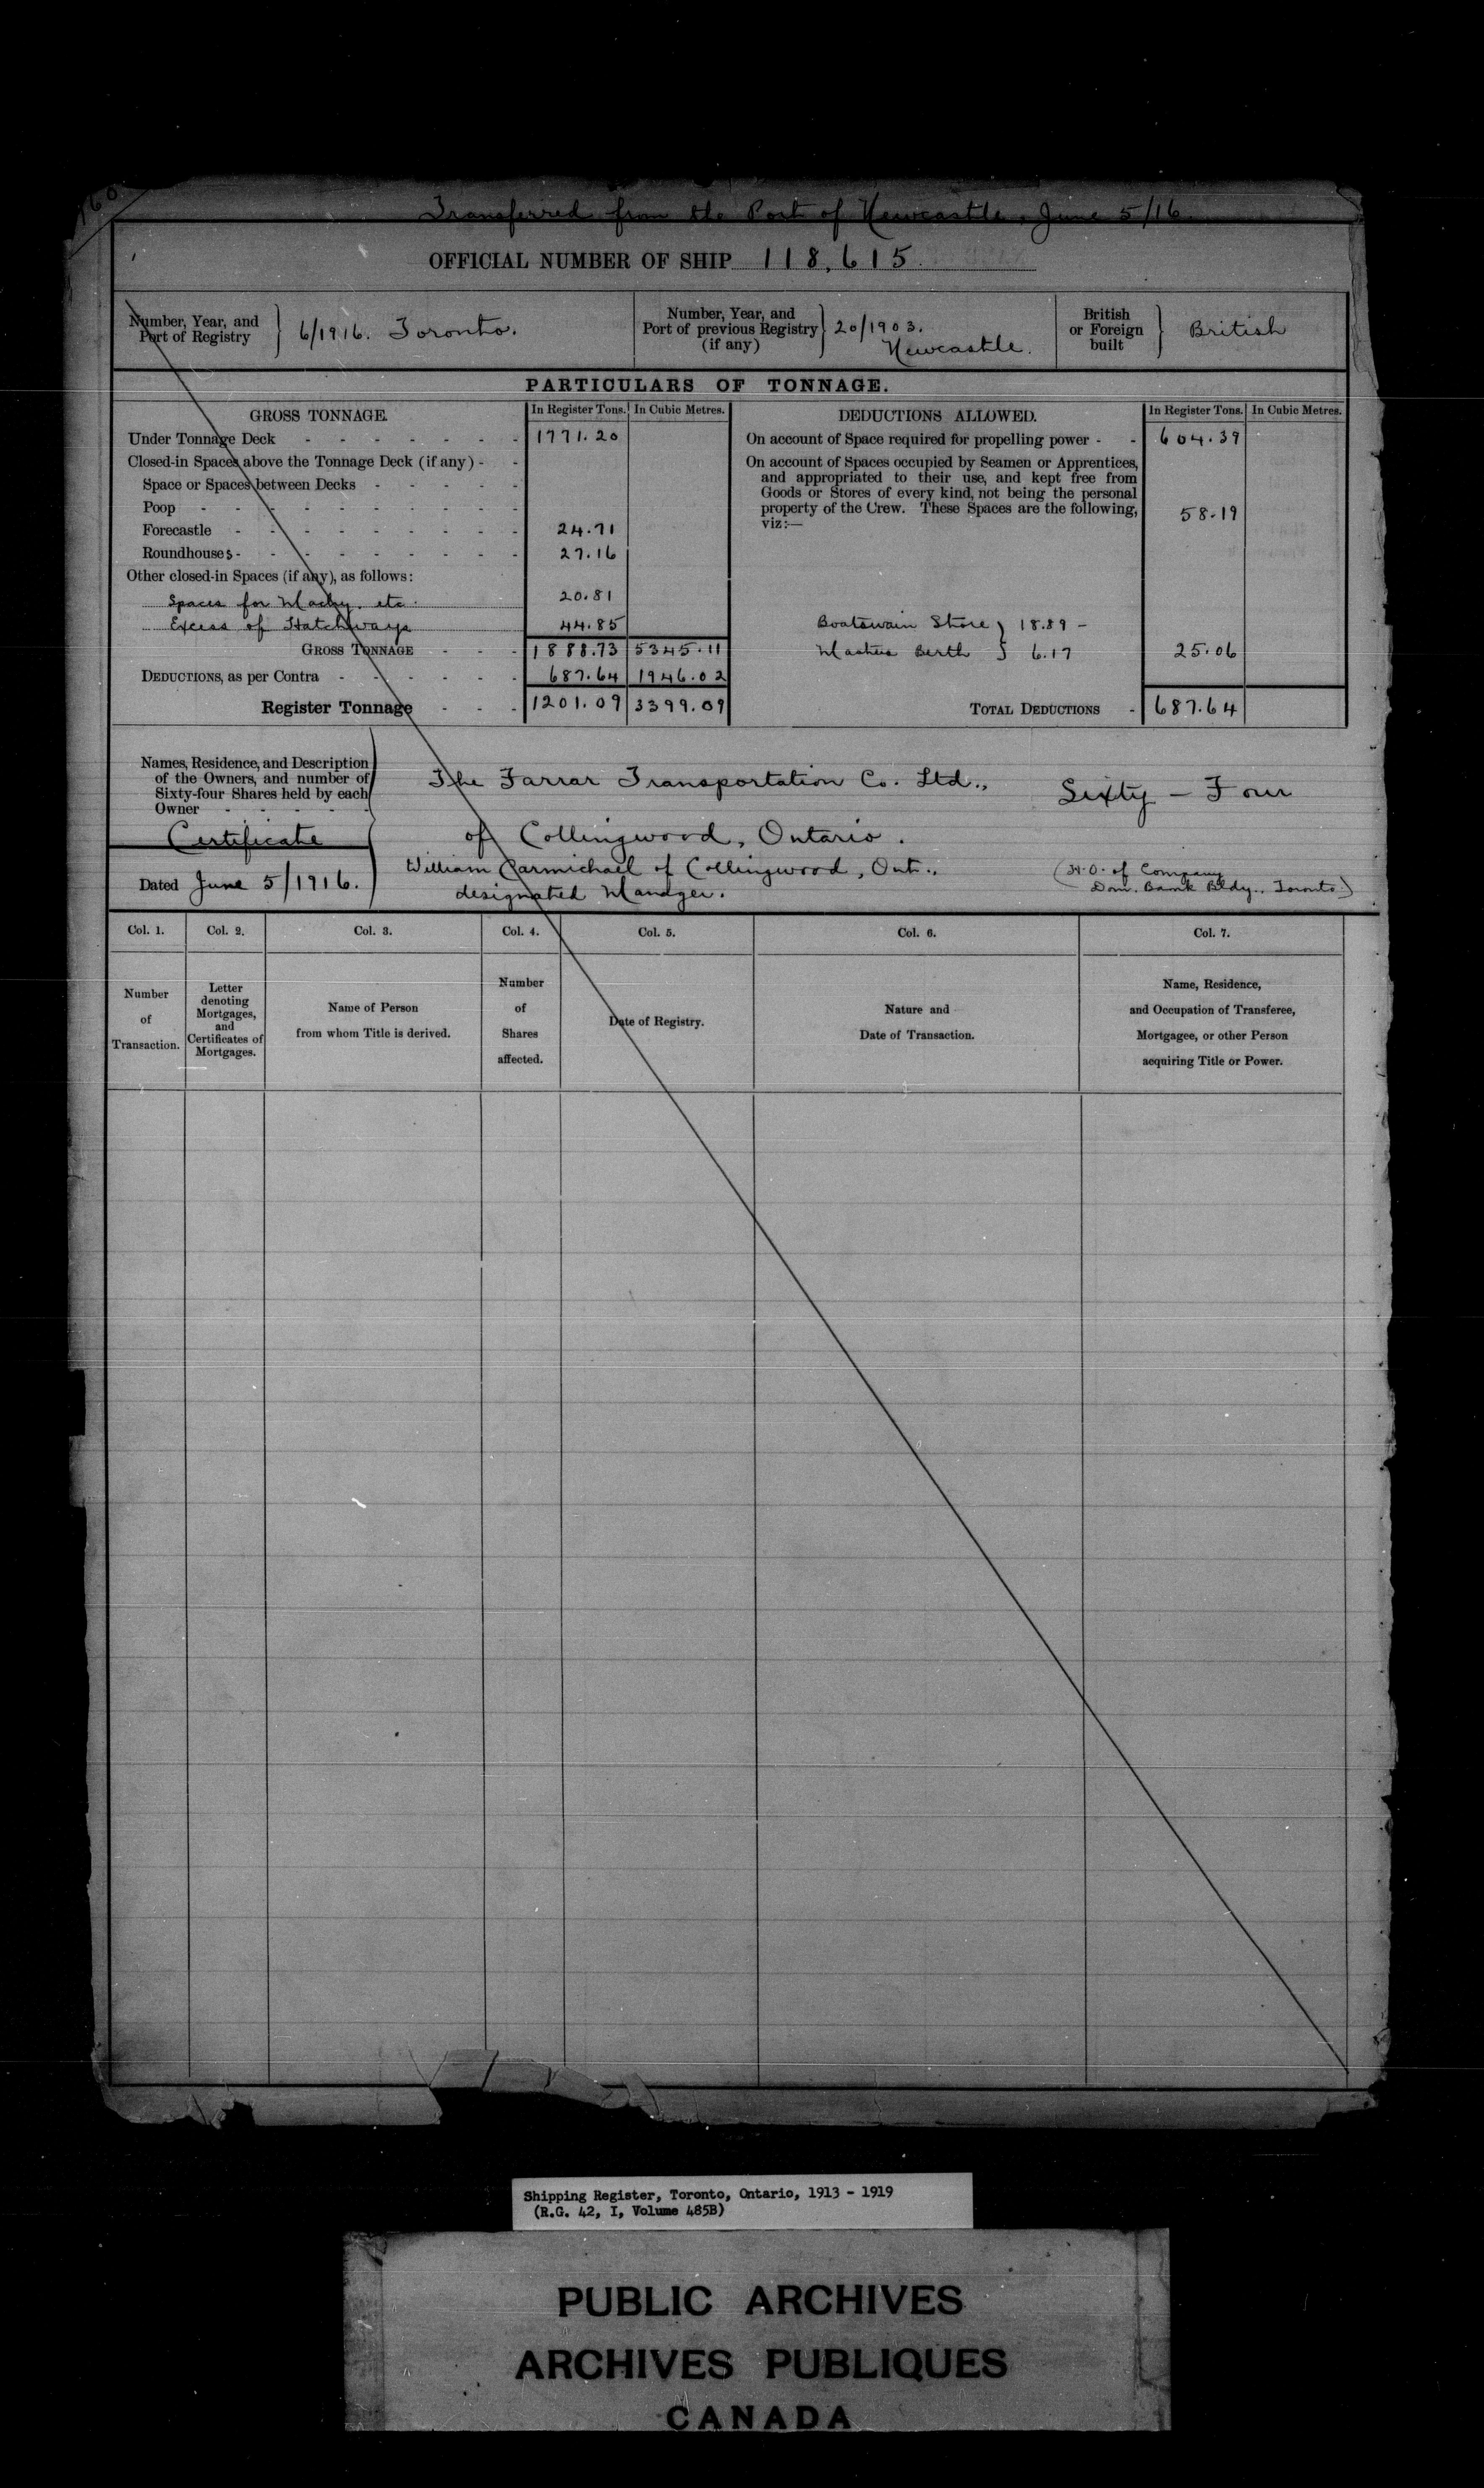 160
Transferred from the Port of Newcastle, June 5/16
OFFICIAL NUMBER OF SHIP 118,615.
Number, Year, and Port of Registry } 6/1916. Toronto.
Number, Year, and Port of previous Registry (if any) } 20/1903. Newcastle.
British or Foreign built } British
PARTICULARS OF TONNAGE.
GROSS TONNAGE. In Register Tons. In Cubic Metres.
Under Tonnage Deck - - - - - - - 1771.20
Closed-in Spaces above the Tonnage Deck (if any) - -
Space or Spaces between Decks - - - - -
Poop - - - - - - - - - -
Forecastle - - - - - - - - - 24.71
Roundhouses - - - - - - - - - 27.16
Other closed-in Spaces (if any), as follows:
Spaces for Machy. etc. 20.81
Excess of Hatchways 44.85
GROSS TONNAGE - - - 1888.73 5345.11
DEDUCTIONS, as per Contra - - - - - - 687.64 1946.02
Register Tonnage - - - 1201.09 3399.09
DEDUCTIONS ALLOWED. In Register Tons. In Cubic Metres.
On account of Space required for propelling power - - 604.39
On account of Spaces occupied by Seamen or Apprentices,
and appropriated to their use, and kept free from
Goods or Stores of every kind, not being the personal
property of the Crew. These Spaces are the following, 58.19
viz:—
Boatswain Store } 18.89 -
Masters Berth } 6.17 25.06
TOTAL DEDUCTIONS - 687.64
Names, Residence, and Description
of the Owners, and number of
Sixty-four Shares held by each
Owner - - - - -
Certificate
Dated June 5/1916.
The Farrar Transportation Co. Ltd., Sixty - Four
of Collingwood, Ontario.
William Carmichael of Collingwood, Ont.,
designated Manager.
(H.O. of Company
Dom. Bank Bldg., Toronto)
Col. 1. Col. 2. Col. 3. Col. 4. Col. 5. Col. 6. Col. 7.
Number
of
Transaction.
Letter
denoting
Mortgages,
and
Certificates of
Mortgages.
Name of Person
from whom Title is derived.
Number
of
Shares
affected.
Date of Registry.
Nature and
Date of Transaction.
Name, Residence,
and Occupation of Transferee,
Mortgagee, or other Person
acquiring Title or Power.
Shipping Register, Toronto, Ontario, 1913 - 1919
(R.G. 42, I, Volume 485B)
PUBLIC ARCHIVES
ARCHIVES PUBLIQUES
CANADA